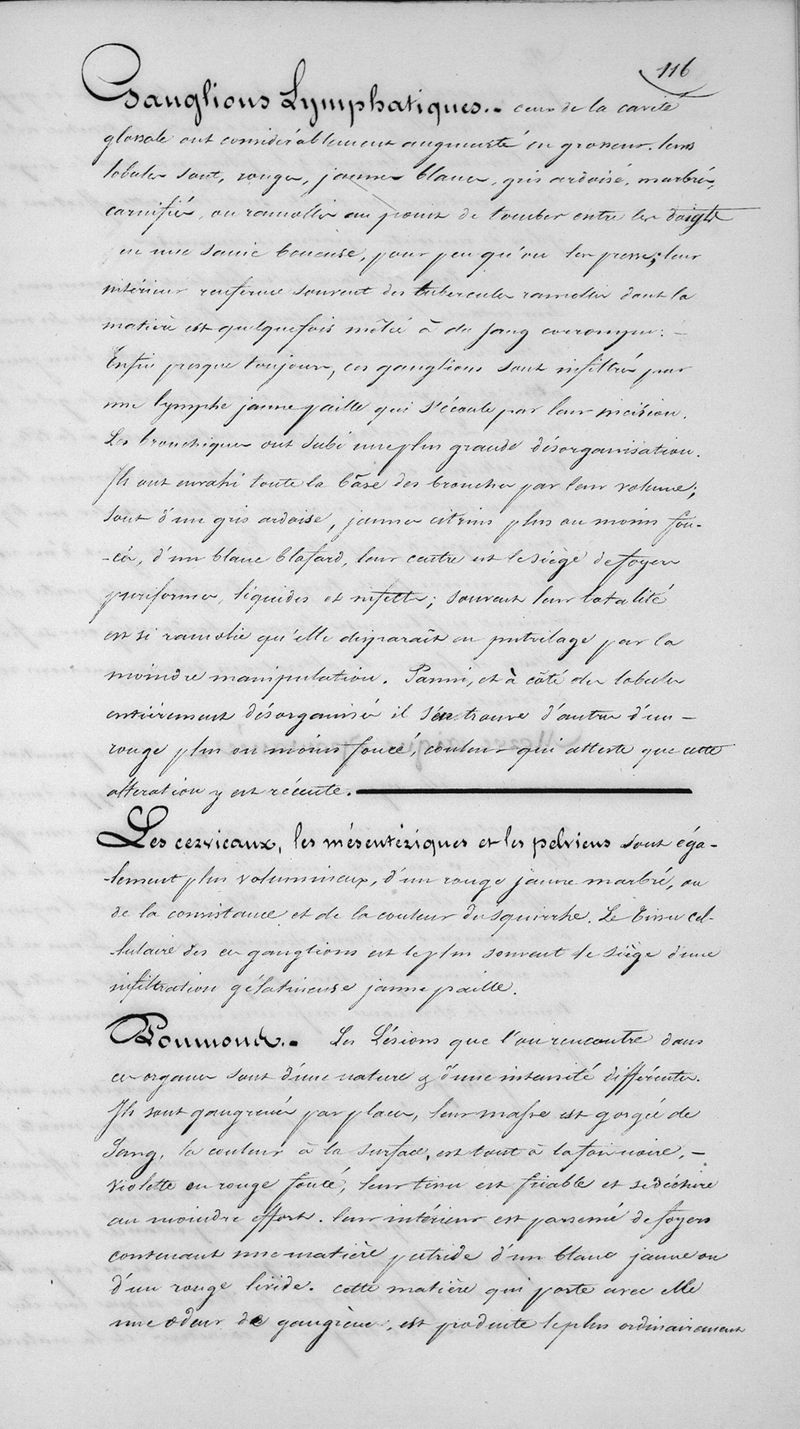 116
Ganglions Lymphatiques.- ceux de la cavité
glossale ont considérablement augmenté en grosseur. leurs
lobules sont, rouges, jaunes blancs, gris ardoisé, marbrés,
carnifiés, ou ramollis au point de tomber entre les doigts
en une sanie boueuse, pour peu qu'on les presse; leur
intérieur renferme souvent des tubercules ramollis dont la
matière est quelquefois mêlée à du sang corrompu. -
Enfin presque toujours, ces ganglions sont infiltrés par
une lymphe jaune paille qui s'écoule par leur incision.
Les bronchiques ont subi une plus grande désorganisation.
Ils ont envahi toute la bâse des bronches par leur volume;
sont d'un gris ardoise, jaunes citrins plus ou moins fon-
-cés, d'un blanc blafard, leur centre est le siège de foyers
puriformes, liquides et infects; souvent leur totalité
est si ramolie qu'elle disparaît en putrilage par la
moindre manipulation. Parmi, et à côté des lobules
entièrement désorganisés il s'en trouve d'autres d'un -
rouge plus ou moins foncé, couleur qui atteste que cette
altération y est récente.
Les cervicaux, les mésentériques et les pelviens sont éga-
-lement plus volumineux, d'un rouge jaune marbré, ou
de la consistance et de la couleur du squirrhe. Le tissu cel-
-lulaire des ces ganglions est le plus souvent le siège d'une
infiltration gélatineuse jaune paille.
Poumons.- Les Lésions que l'on rencontre dans
ces organes sont d'une nature & d'une intensité différentes.
Ils sont gangrenés par places, leur masse est gorgée de
sang, la couleur à la surface, est tout à la fois noire, -
violette ou rouge foncé, leur tissu est friable et se déchire
au moindre effort. leur intérieur est parsemé de foyers
contenant une matière putride d'un blanc jaune ou
d'un rouge livide. cette matière qui porte avec elle
une odeur de gangrène, est produite le plus ordinairement